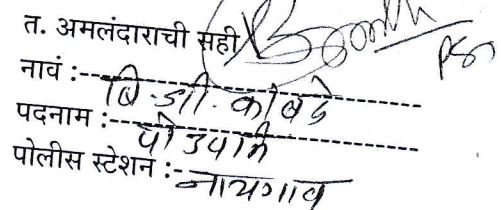 त. अमलंदाराची सही
नावं :- बि. डी. कांबळे
पदनाम :- पो उपनि
पोलीस स्टेशन :- नायगाव